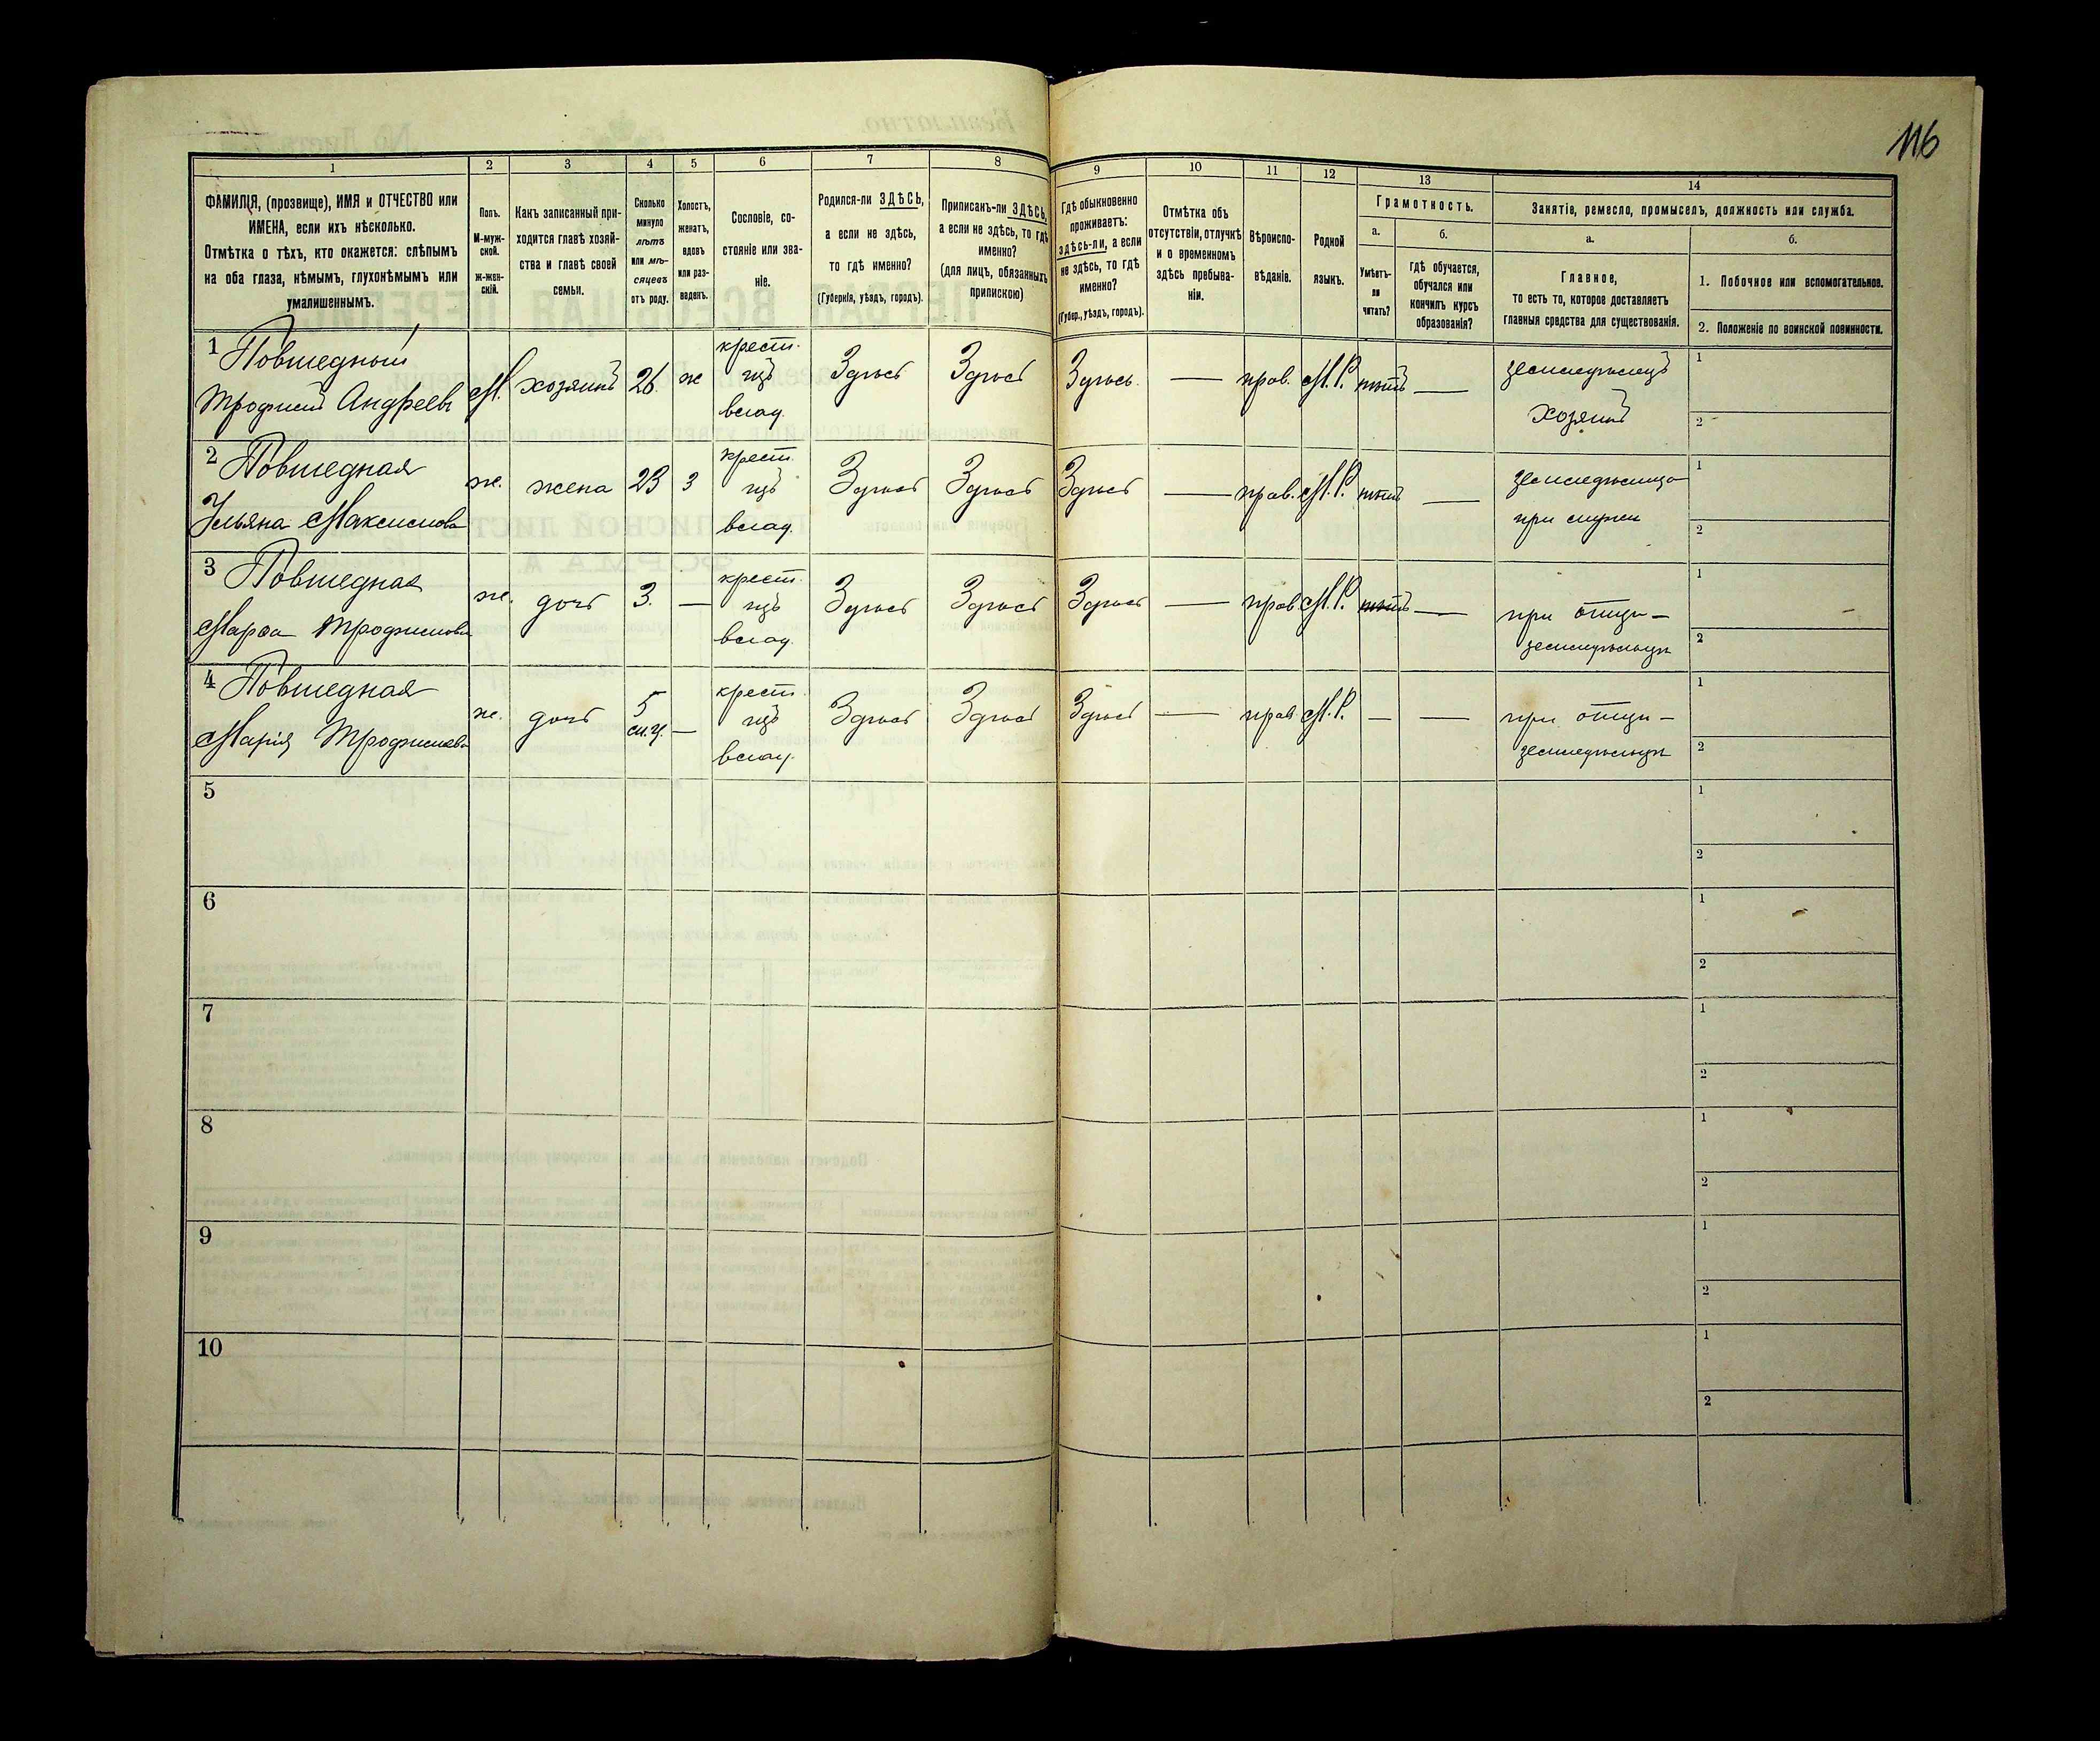 116
1
2
3
4
5
6
7
8
9
10
11
12
13
14
ФАМИЛІЯ, (прозвище), ИМЯ и ОТЧЕСТВО или
ИМЕНА, если ихъ нѣсколько.
Отмѣтка о тѣхъ, кто окажется: слѣпымъ
на оба глаза, нѣмымъ, глухонѣмымъ или
умалишеннымъ.
Полъ.
М-муж-
ской.
Ж-жен-
скій.
Какъ записанный при-
ходится главѣ хозяй-
ства и главѣ своей
семьи.
Сколько
минуло
лѣтъ
или мѣ-
сяцевъ
отъ роду.
Холостъ,
женатъ,
вдовъ
или раз-
веденъ.
Сословіе, со-
стояніе или зва-
ніе.
Родился-ли ЗДѢСЬ,
а если не здѣсь,
то гдѣ именно?
(Губернія, уѣздъ, городъ).
Приписанъ-ли ЗДѢСЬ,
а если не здѣсь, то гдѣ
именно?
(для лицъ, обязанныхъ
припискою)
Гдѣ обыкновенно
проживаетъ:
здѣсь-ли, а если
не здѣсь, то гдѣ
именно?
(Губер., уѣздъ, городъ).
Отмѣтка объ
отсутствіи, отлучкѣ
и о временномъ
здѣсь пребыва-
ніи.
Вѣроиспо-
вѣданіе.
Родной
языкъ.
Грамотность.
а.
Умѣетъ-
ли
читать?
б.
гдѣ обучается,
обучался или
кончилъ курсъ
образованія?
Занятіе, ремесло, промыселъ, должность или служба.
а.
Главное,
то есть то, которое доставляетъ
главныя средства для существованія.
б.
1. Побочное или вспомогательное.
2. Положеніе по воинской повинности.
1 Повшедный
Трофимъ Андреевъ
М.
хозяинъ
26
ж
крест.
изъ
влад.
Здѣсь
Здѣсь
Здѣсь.
—
прав.
М.Р.
нѣтъ
—
земледѣлецъ
хозяинъ
1
2
2 Повшедная
Ульяна Максимова
ж.
жена
23
з
крест.
изъ
влад.
Здѣсь
Здѣсь
Здѣсь
—
прав.
М.Р.
нѣтъ
—
при мужѣ
1
2
3 Повшедная
Марѳа Трофимова
ж.
дочь
3.
—
крест.
изъ
влад.
Здѣсь
Здѣсь
Здѣсь
—
прав.
М.Р.
нѣтъ
—
при отцѣ —
земледѣльцѣ
1
2
4 Повшедная
Марія Трофимова
ж.
дочь
5
—
крест.
изъ
влад.
Здѣсь
Здѣсь
Здѣсь
—
прав.
М.Р.
—
—
при отцѣ —
земледѣльцѣ
1
2
5
1
2
6
1
2
7
1
2
8
1
2
9
1
2
10
1
2